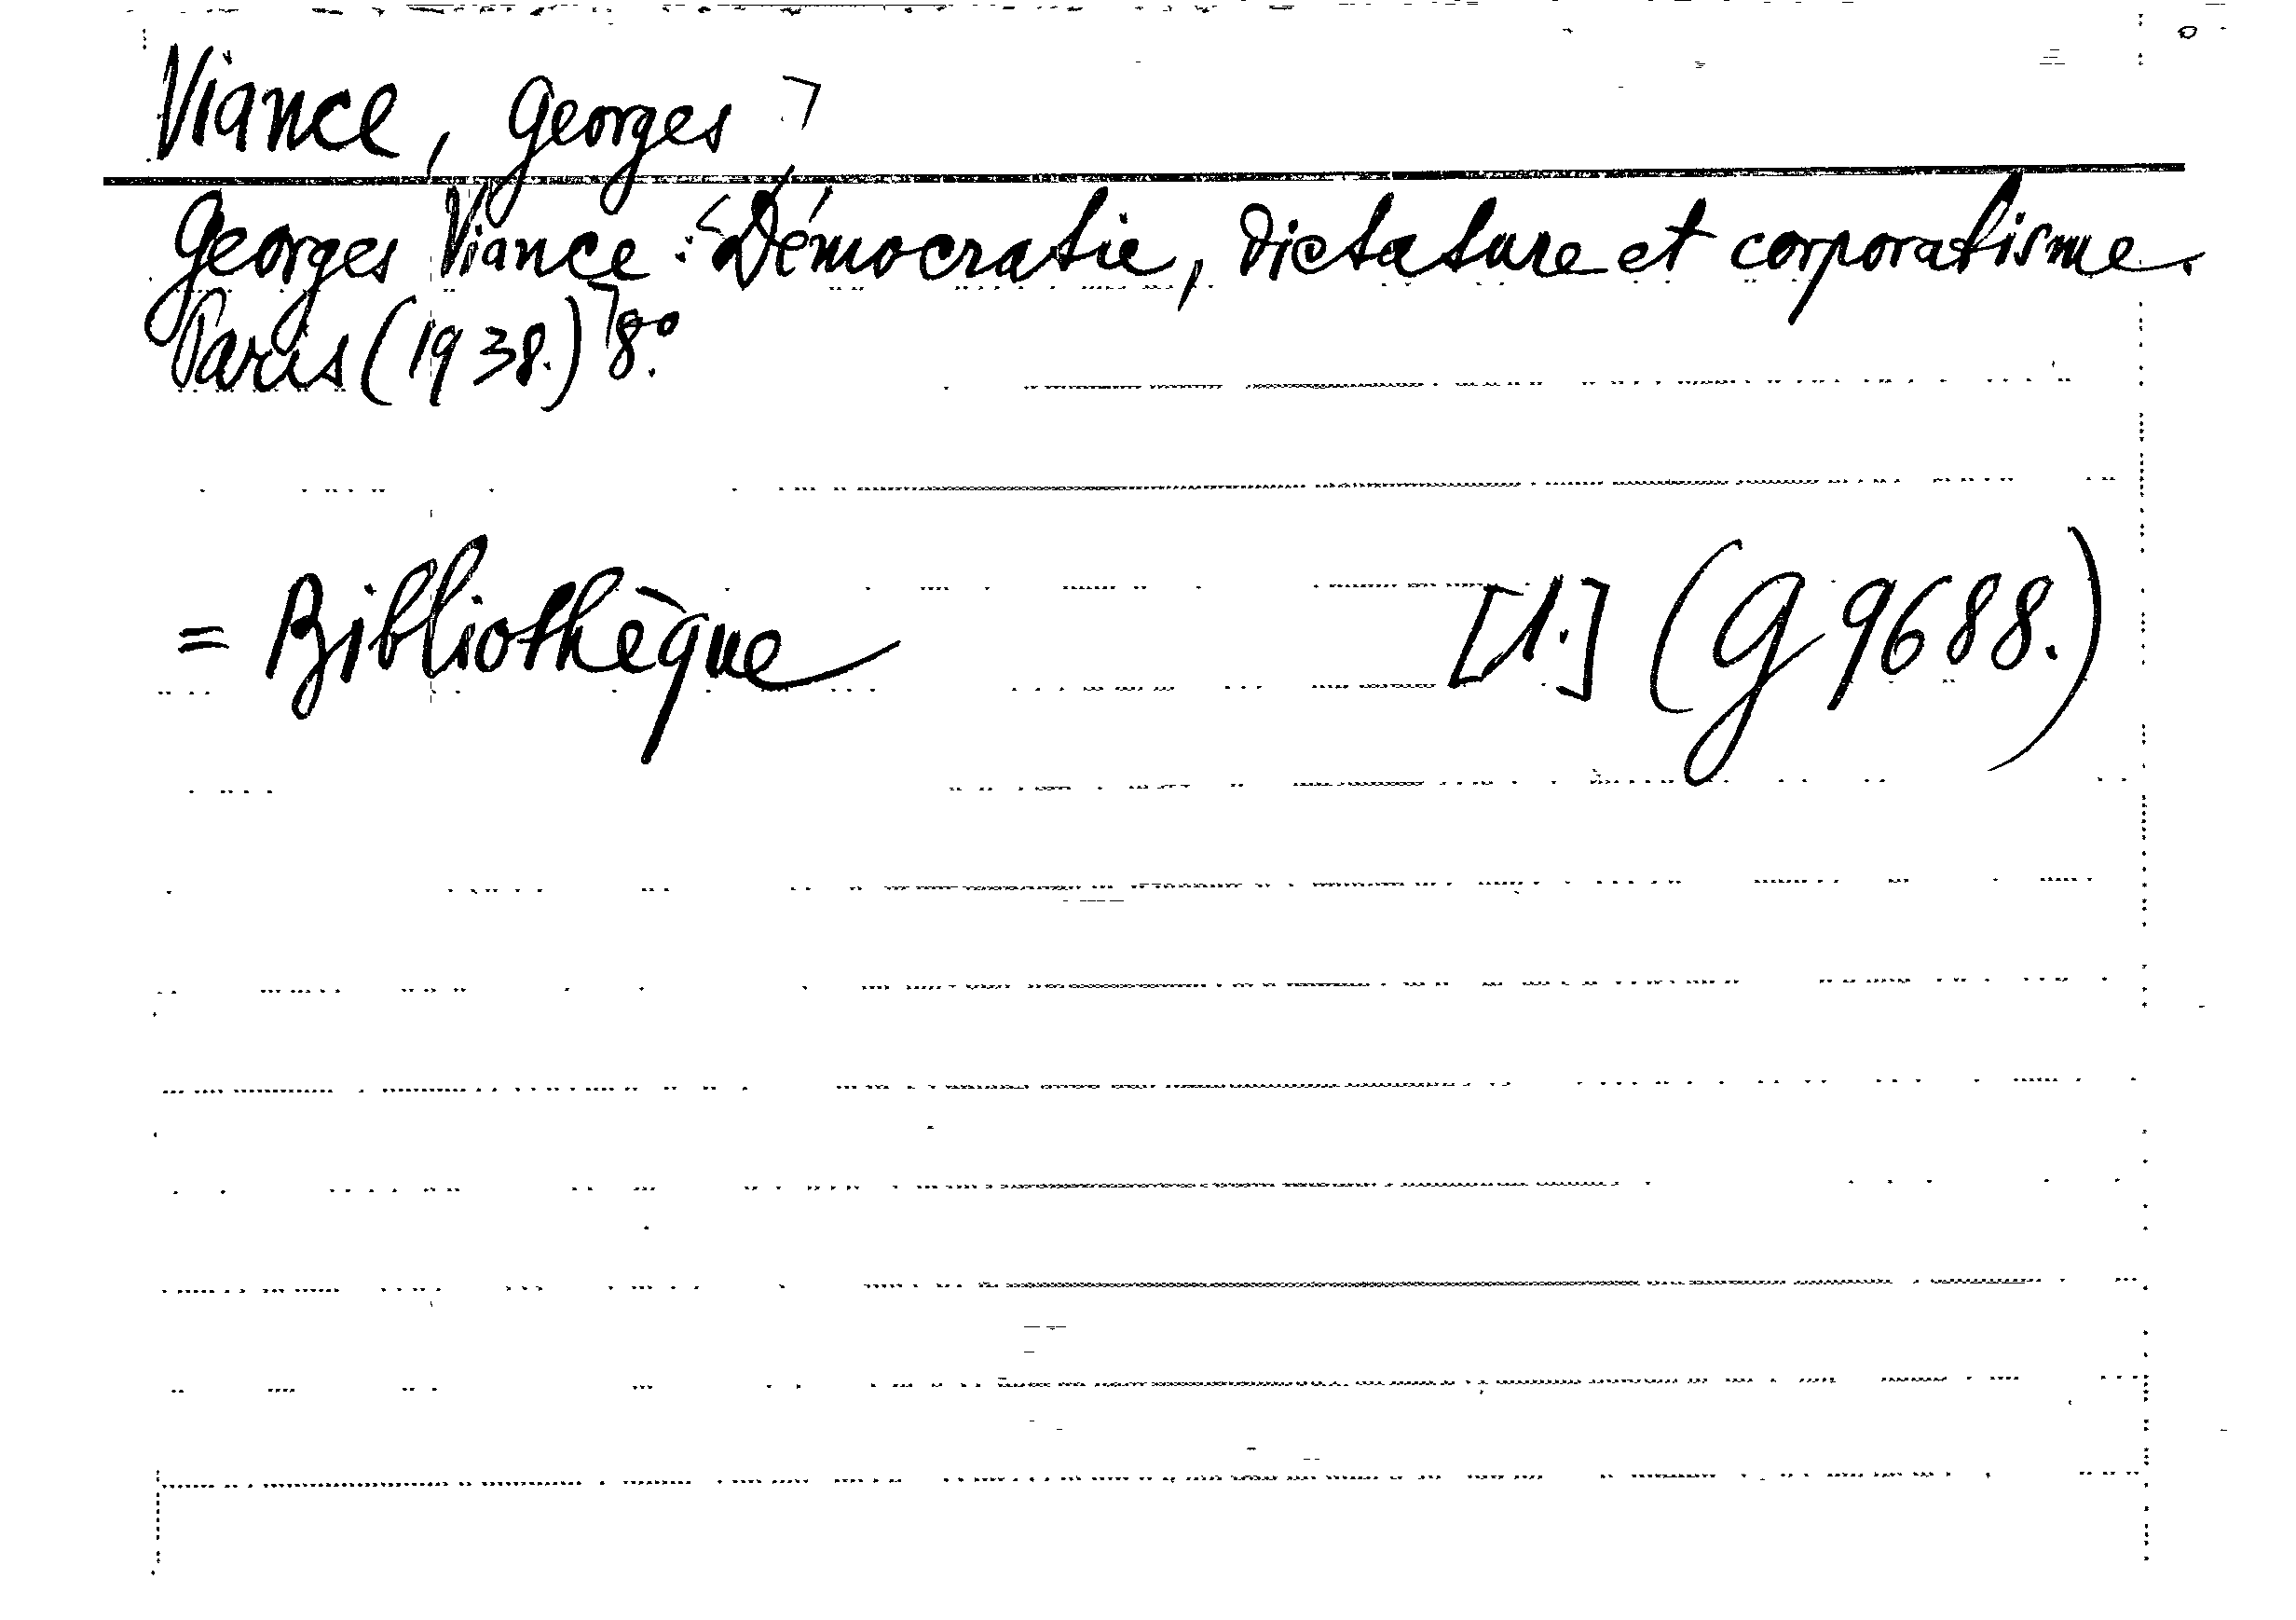 Viance, Georges
Georges Viance: Démocratie, dictature et corporatisme.
Paris (1938.) 8.º
= Bibliothèque [1.] (G 9688.)